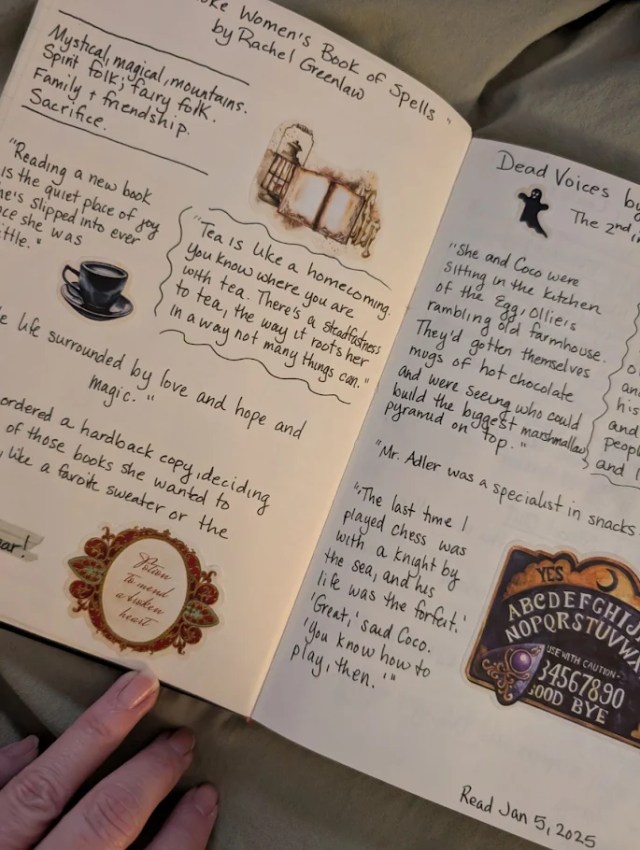 Women's Book of Spells"
by Rachel Greenlaw
Mystical, magical, mountains.
Spirit folk; fairy folk.
Family + friendship.
Sacrifice.
"Reading a new book
is the quiet place of joy
she's slipped into ever
she was
little."
"Tea is like a homecoming.
You know where you are
with tea. There's a steadfastness
to tea, the way it roots her
in a way not many things can."
life surrounded by love and hope and
magic."
ordered a hardback copy, deciding
of those books she wanted to
, like a favorite sweater or the
Potion
to mend
a broken
heart
Dead Voices by
The 2nd
"She and Coco were
sitting in the kitchen
of the Egg, Ollie's
rambling old farmhouse.
They'd gotten themselves
mugs of hot chocolate
and were seeing who could
build the biggest marshmallow
pyramid on top."
and
his
and
and
"Mr. Adler was a specialist in snacks
"'The last time I
played chess was
with a knight by
the sea, and his
life was the forfeit.'
'Great,' said Coco.
'You know how to
play, then.'"
YES
ABCDEFGHIJ
NOPQRSTUVW
USE WITH CAUTION
34567890
GOOD BYE
Read Jan 5, 2025